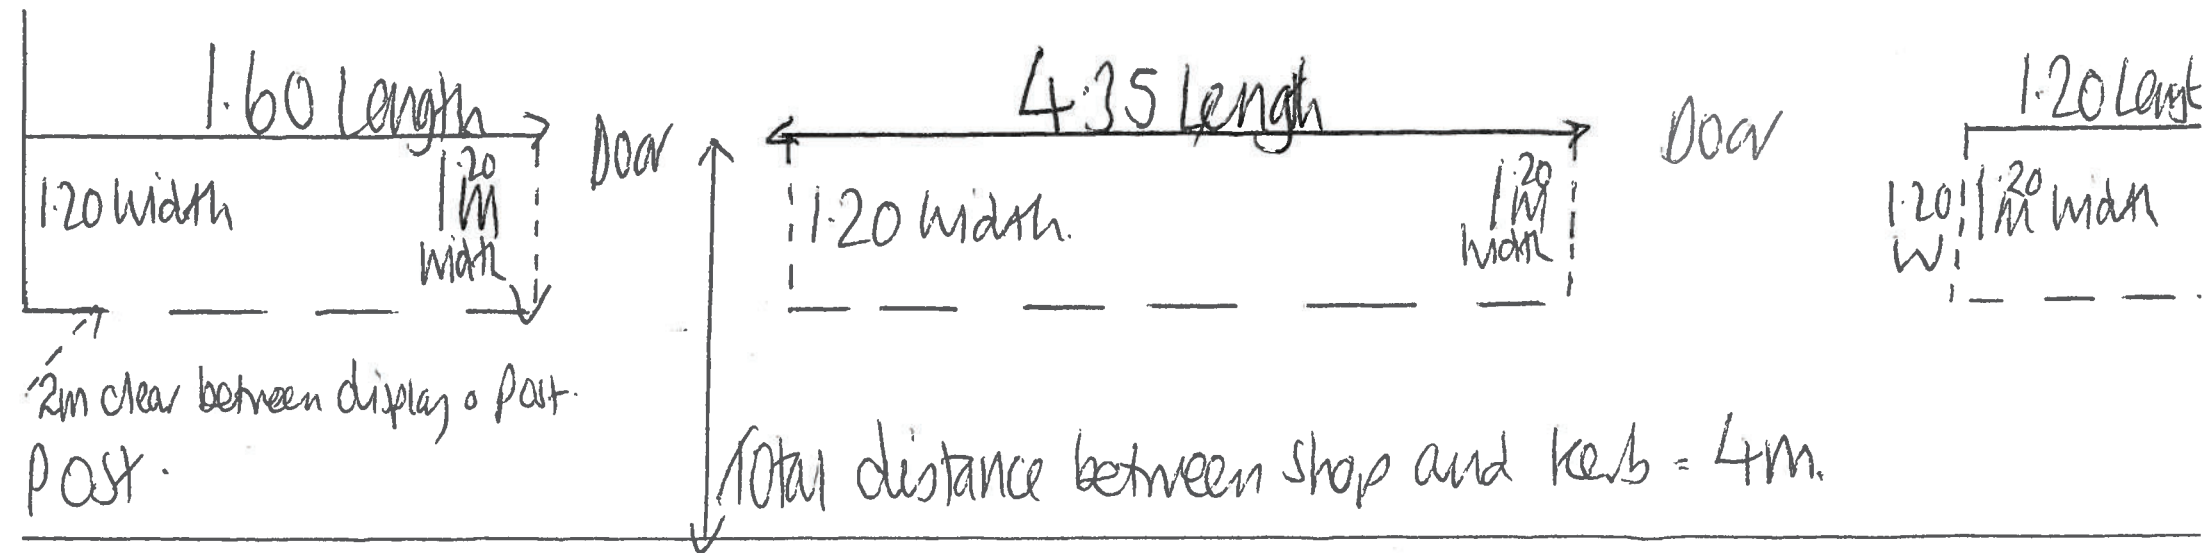 1.60 Length
4.35 Lengh
1.20 Lengt
Door
Door
1.20 width
1.20
1m
width
1.20 width.
1.20
1m
width
1.20
W
1.20
1m width
2m clear between display & Post.
Post.
Total distance between shop and kerb = 4m.